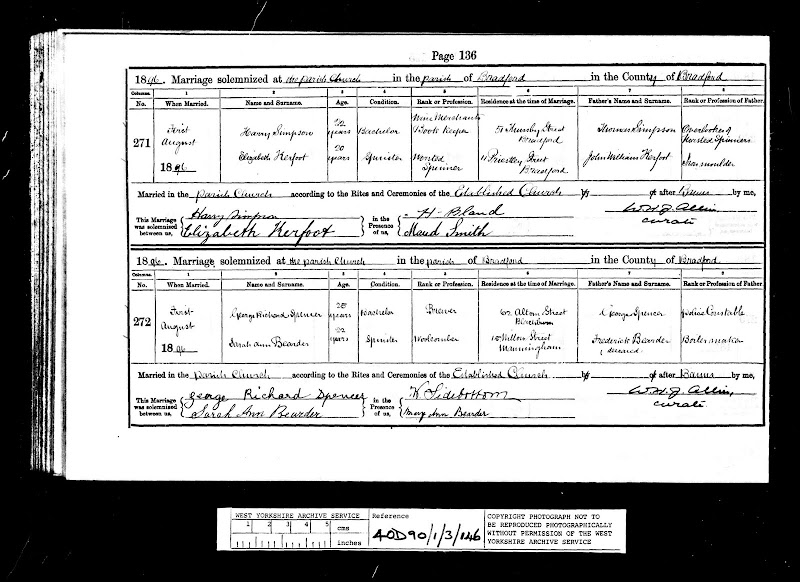 Page 136
1896. Marriage solemnized at the parish Church in the parish of Bradford in the County of Bradford
Columns. 1 2 3 4 5 6 7 8
No. When Married. Name and Surname. Age. Condition. Rank or Profession. Residence at the time of Marriage. Father's Name and Surname. Rank or Profession of Father.
271 First August 1896
Harry Simpson 22 years Bachelor Wine Merchants Book Keeper 51 Street Bradford Thomas Simpson Overlooker of Worsted Spinners
Elizabeth Kerfoot 20 years Spinster Worsted Spinner 11 Priestley Street Bradford John William Kerfoot Iron moulder
Married in the Parish Church according to the Rites and Ceremonies of the Established Church by or after Banns by me,
This Marriage was solemnized between us, Harry Simpson Elizabeth Kerfoot in the Presence of us, H. Bland Maud Smith W.H.J. Allin, curate
1896. Marriage solemnized at the parish Church in the parish of Bradford in the County of Bradford
Columns. 1 2 3 4 5 6 7 8
No. When Married. Name and Surname. Age. Condition. Rank or Profession. Residence at the time of Marriage. Father's Name and Surname. Rank or Profession of Father.
272 First August 1896
George Richard Spencer years Bachelor Brewer Street Blackburn George Spencer Police Constable
Sarah Ann Bearder 22 years Spinster Woolcomber Willow Street Manningham Frederick Bearder (deceased) Boiler maker
Married in the Parish Church according to the Rites and Ceremonies of the Established Church by or after Banns by me,
This Marriage was solemnized between us, George Richard Spencer Sarah Ann Bearder in the Presence of us, W. Sidebottom Mary Ann Bearder W.H.J. Allin, curate
WEST YORKSHIRE ARCHIVE SERVICE
1 2 3 4 5 cms
inches
Reference
40D90/1/3/146
COPYRIGHT PHOTOGRAPH NOT TO
BE REPRODUCED PHOTOGRAPHICALLY
WITHOUT PERMISSION OF THE WEST
YORKSHIRE ARCHIVE SERVICE